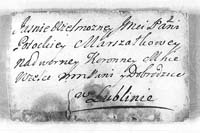 Jaśnie Wielmożney Jmci Pani
Potockiey Marszałkowey
nadworney Koronney Mnie
Wielce mm Pani y Dobrodzice
w Lublinie